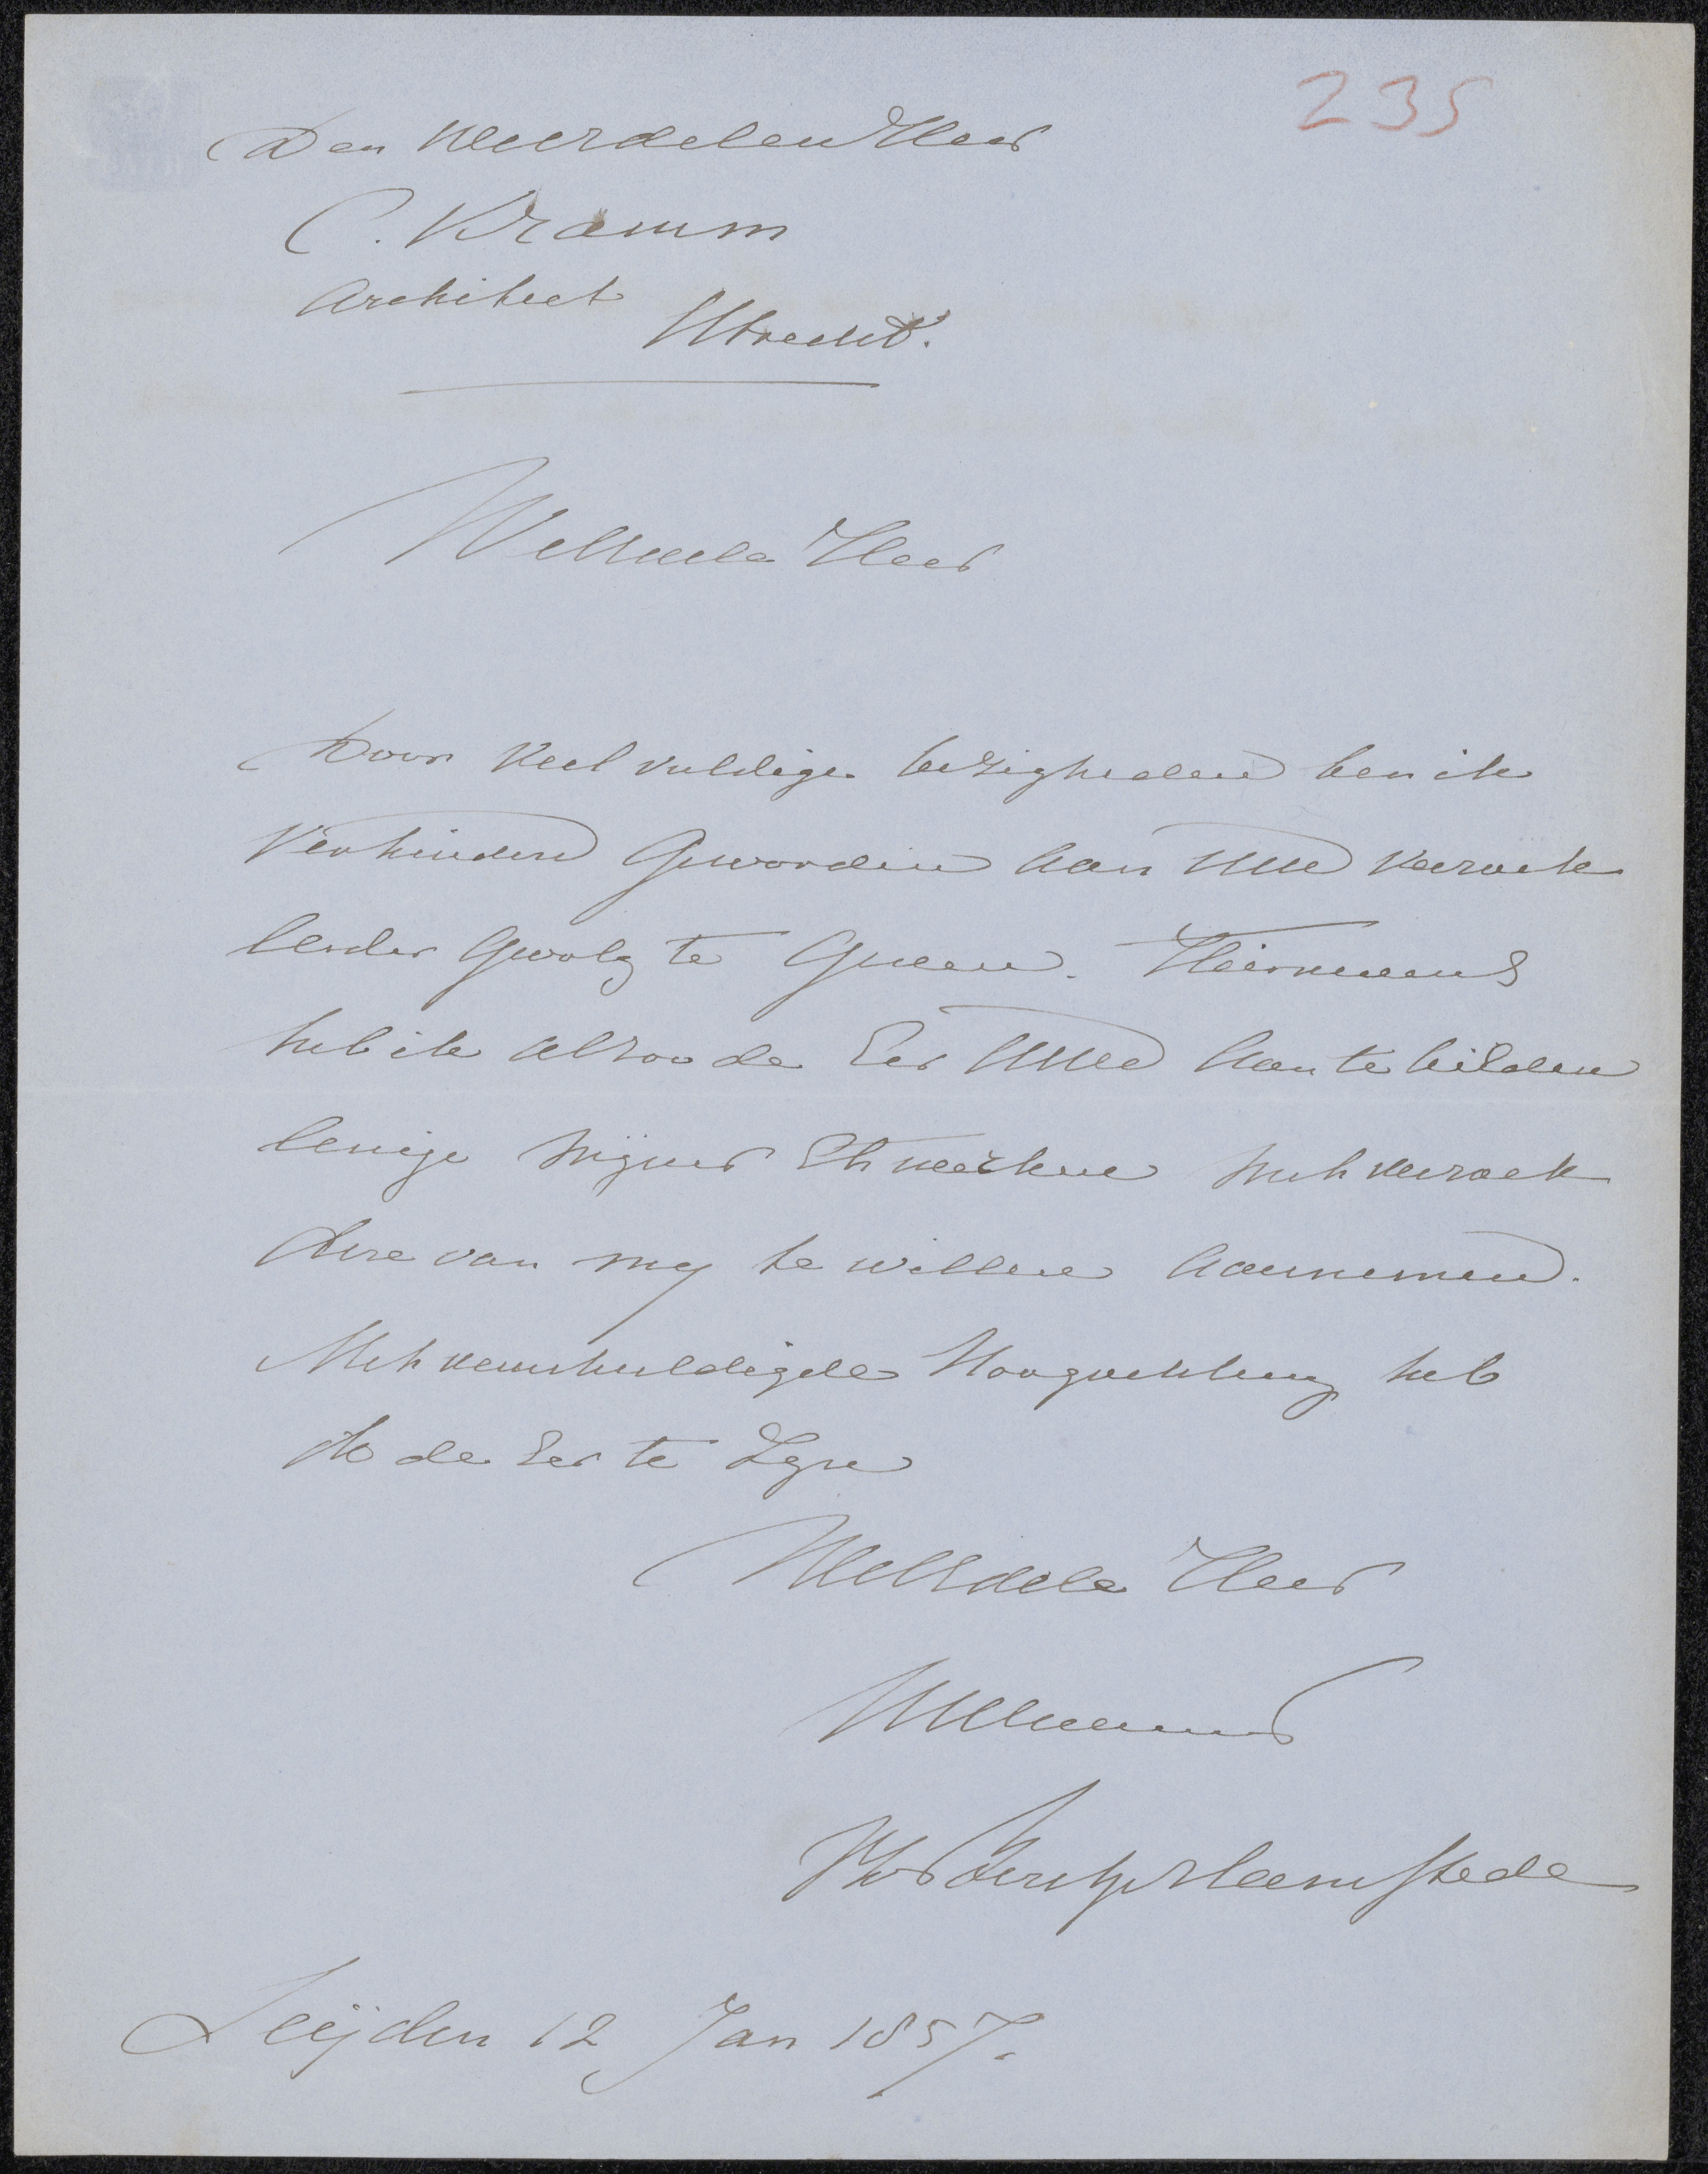 235
Den WelEdelen Heer
C. Kramm
Architect
Utrecht.
WelEdele Heer
Door veelvuldige bezigheden ben ik
Verhinderd Geworden aan UwEd verzoek
Eerder Gevolg te Geven. Hiernevens
heb ik alzoo de Eer UwEd Aan te bieden
Eenige mijner Etswerken met verzoek
deze van my te willen Aannemen.
Met verschuldigde Hoogachting heb
ik de Eer te Zyn
WelEdele Heer
UwEd
Heemstede
Leijden 12 Jan 1857.